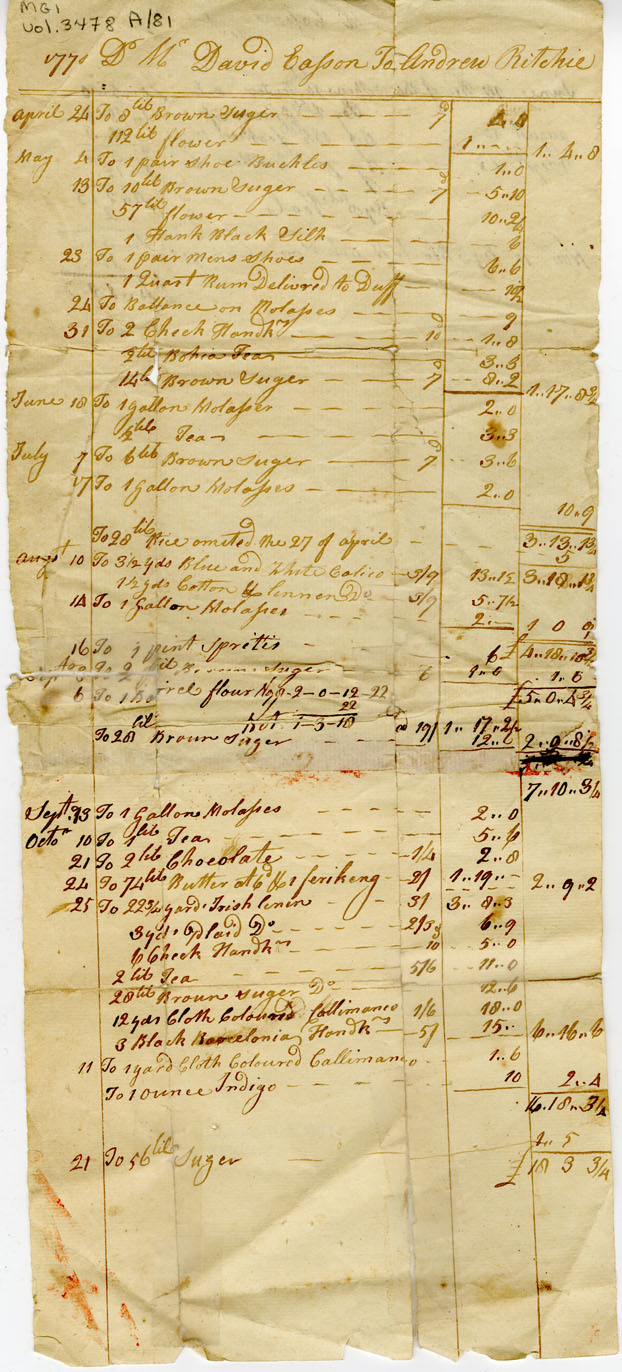 MG1
Vol. 3478 A/81
Dr Mr David Easson To Andrew Ritchie
April 24 To 8 lib Brown Suger 7d 4..8
112 lib flower 1..-..- 1..4..8
May 4 To 1 pair Shoe Buckles 1..0
13 To 10 lib Brown Suger 7d 5..10
57 lib flower 10..2¼
1 Hank Black Silk 6
23 To 1 pair mens Shoes 6..6
1 Quart Rum Delivred to Duff
24 To Ballance on Molasses 9
31 To 2 Check Handkrs 10d 1..8
½ lib Bohea Tea 3..3
14 lib Brown Suger 7d 8..2 1..17..8¾
June 18 To 1 gallon Molasses 2..0
½ lib Tea 3..3
July 7 To 6 lib Brown Suger 7d 3..6
17 To 1 Gallon Molasses 2..0
10..9
To 28 lib Rice omited the 27 of april 3..13..1¾
5
Augst 10 To 3½ yds Blue and White Calico 3/9 13..1½ 3..18..1¾
1½ yds Cotton & linnen Do 3/9 5..7½
14 To 1 Gallon Molasses 2..- 1 0 9
16 To 1 pint Spretis 6 £ 4..18..10¾
To 2 lib Brown Suger 6 1..6 1..6
6 To 1 Barrel flour No 1-2-0-12-22 £5..0..4¾
22
1-3-18 @ 19/ 1..17..2½
To 28 lib Broun Suger 12..6 2..0..8½
7..10..3¼
Sept. 23 To 1 Gallon Molasses 2..0
Octor 10 To 1 lib Tea 5..6
21 To 2 lib Chocolate 1/4 2..8
24 To 74 lib Butter at 6d & 1 ferikeng 2/ 1..19..- 2..9..2
25 To 22¾ yard Irish linen 3/ 3..8..3
3 yds plaid Do 2/3 6..9
6 Check Handkrs 10 5..0
2 lib Tea 5/6 11..0
28 lib Broun Suger Do 12..6
12 yds Cloth Coloured Callimanco 1/6 18..0
3 Black Barcelonia Handkrs 5/ 15..- 6..16..6
11 To 1 yard Cloth Coloured Callimanco 1..6
To 1 ounce Indigo 10 2..4
16..18..3¼
1..5
21 To 56 lib Suger £ 18 3 3/4